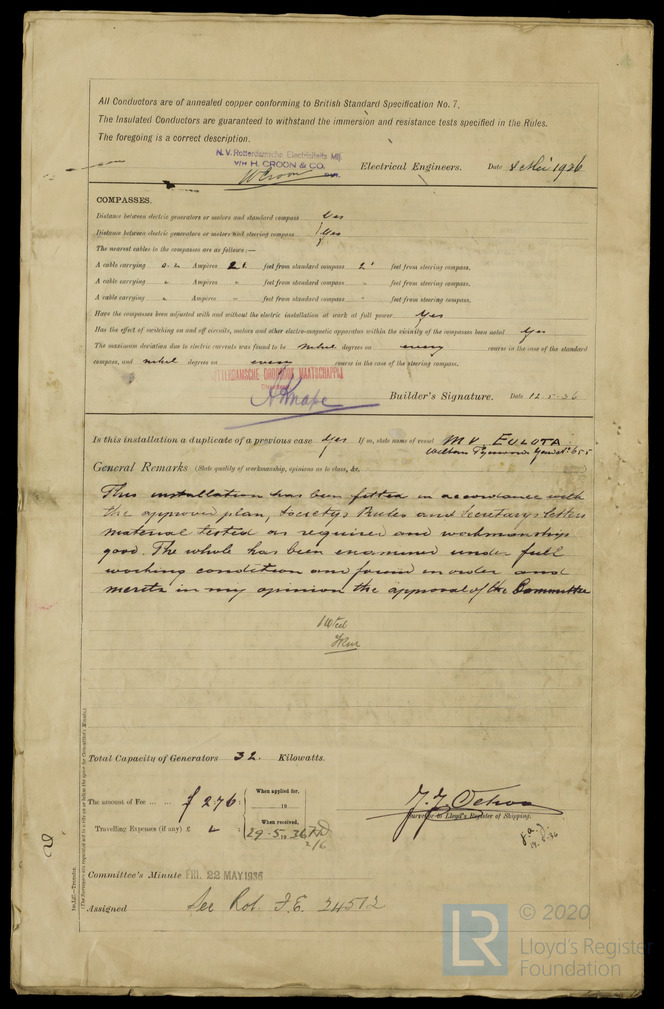 All Conductors are of annealed copper conforming to British Standard Specification No. 7.
The Insulated Conductors are guaranteed to withstand the immersion and resistance tests specified in the Rules.
The foregoing is a correct description.
N.V. Rotterdamsche Electriciteits Mij.
v/h H. CROON & CO.
WCroon Electrical Engineers. Date 8 Mei 1936
COMPASSES.
Distance between electric generators or motors and standard compass Yes
Distance between electric generators or motors and steering compass Yes
The nearest cables to the compasses are as follows:—
A cable carrying Ampères 2' feet from standard compass 2' feet from steering compass.
A cable carrying " Ampères " feet from standard compass " feet from steering compass.
A cable carrying " Ampères " feet from standard compass " feet from steering compass.
Have the compasses been adjusted with and without the electric installation at work at full power Yes
Has the effect of switching on and off circuits, motors and other electro-magnetic apparatus within the vicinity of the compasses been noted Yes
The maximum deviation due to electric currents was found to be degrees on every course in the case of the standard
compass, and degrees on every course in the case of the steering compass.
ROTTERDAMSCHE DROOGDOK MAATSCHAPPIJ
Builder's Signature. Date 12-5-36
Is this installation a duplicate of a previous case Yes If so, state name of vessel M.V. EULOTA
Yard No 655
General Remarks (State quality of workmanship, opinions as to class, &c.
This installation has been fitted in accordance with
the approved plan, Society's Rules and Secretary's letters
material tested as required and workmanship
good. The whole has been examined under full
working condition and found in order and
merits in my opinion the approval of the Committee
Noted
Total Capacity of Generators 32. Kilowatts.
The amount of Fee ... ... f 276: When applied for,
19
Travelling Expenses (if any) £ When received,
29.5.1936
Surveyor to Lloyd's Register of Shipping.
Committee's Minute FRI. 22 MAY 1936
Assigned See Rot. F.E. 24512
© 2020
LR
Lloyd's Register
Foundation